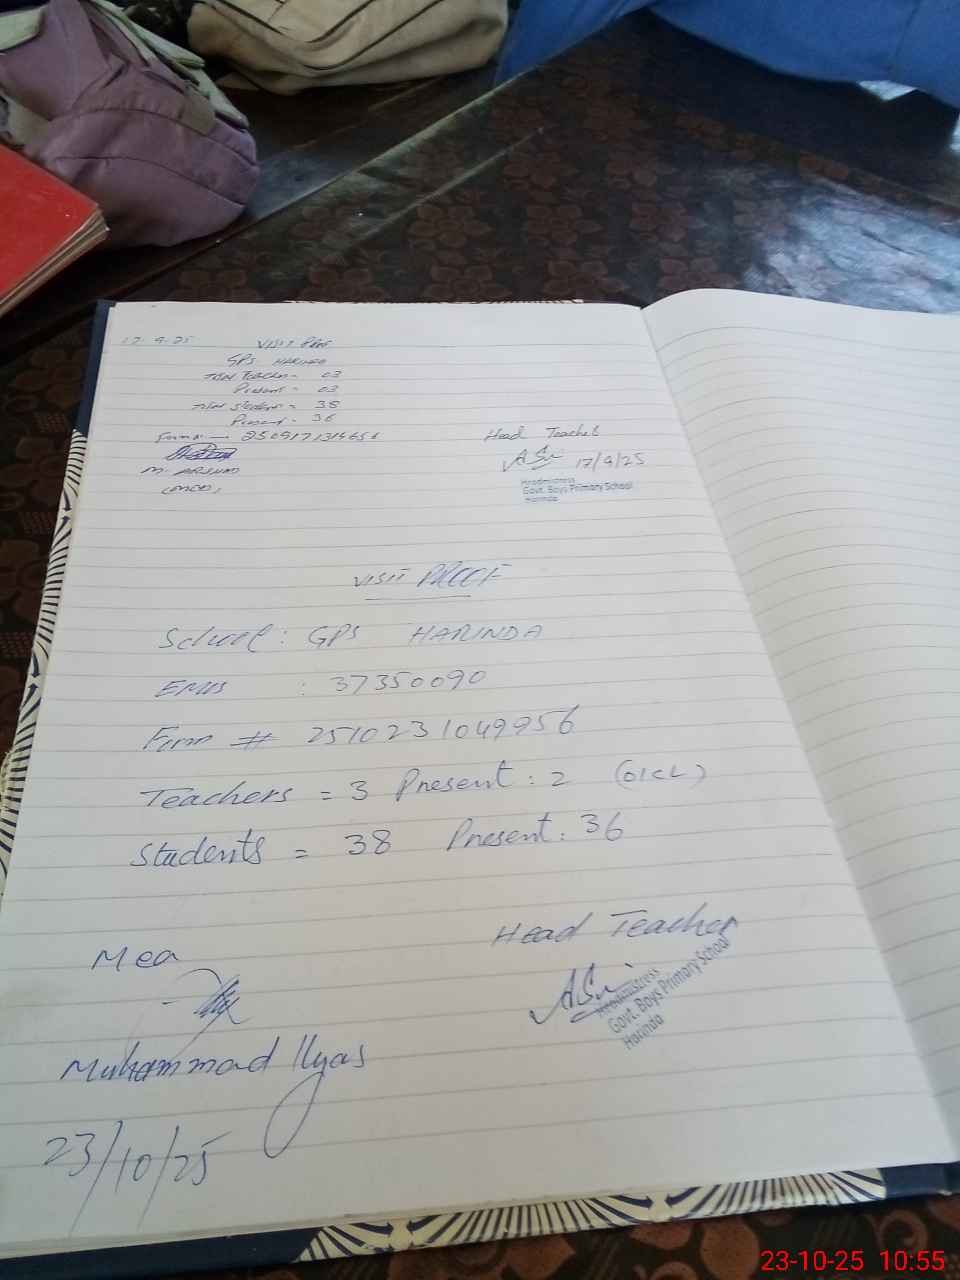 17-9-25 VISIT PROF
GPS HARINDA
Total Teacher - 03
Present - 03
Total Student = 38
Present - 36
Form # -
Head Teacher
17/9/25
M. ARSHAD
(MEA)
Headmistress
Govt. Boys Primary School
Harinda
VISIT PROOF
School : GPS HARINDA
EMIS : 37350090
Form # 2510231049956
Teachers = 3 Present : 2
Students = 38 Present : 36
Head Teacher
Mea
Headmistress
Govt. Boys Primary School
Harinda
Muhammad Ilyas
23/10/25
23-10-25 10:55